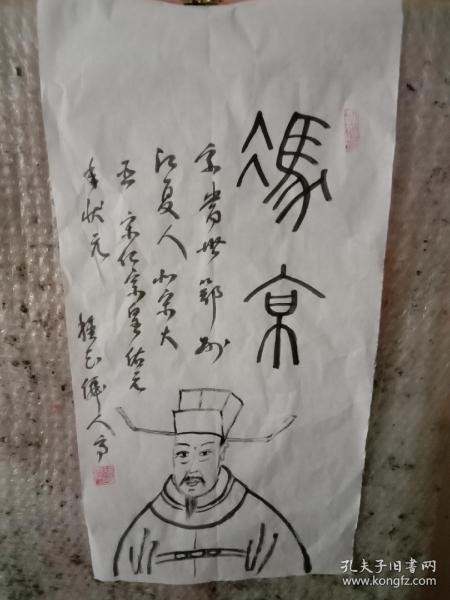 馮京
字當世鄂州
江夏人北宋大
臣 宋仁宗皇佑元
年狀元
孔夫子旧书网
www.kongfz.com